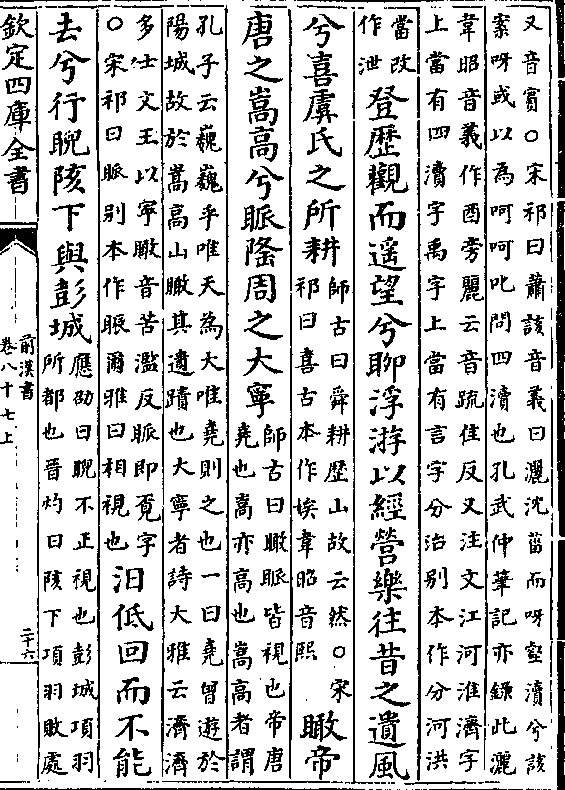 又音賔○宋祁曰蕭該音義曰灑沈菑而呀壑瀆兮該
案呀或以為呵呵叱問四瀆也孔武仲筆記亦錄此灑
韋昭音義作酉旁麗云音疏佳反又注文江河淮濟字
上當有四瀆字禹字上當有言字分治別本作分河洪
當改
作泄
登歴觀而遥望兮聊浮游以經營樂往昔之遺風
兮喜虞氏之所耕
師古曰舜耕歴山故云然○宋
祁曰喜古本作娭韋昭音熙
瞰帝
唐之嵩高兮眽隆周之大寧
師古曰瞰眽皆視也帝唐
堯也嵩亦高也嵩高者謂
孔子云巍巍乎唯天為大唯堯則之也一曰堯曾遊於
陽城故於嵩高山瞰其遺蹟也大寧者詩大雅云濟濟
多仕文王以寧瞰音苦濫反眽即覓字
○宋祁曰眽別本作脤爾雅曰相視也
汩低回而不能
去兮行睨陔下與彭城
應劭曰睨不正視也彭城項羽
所都也晉灼曰陔下項羽敗處
欽定四庫全書
前漢書
卷八十七上
二十六